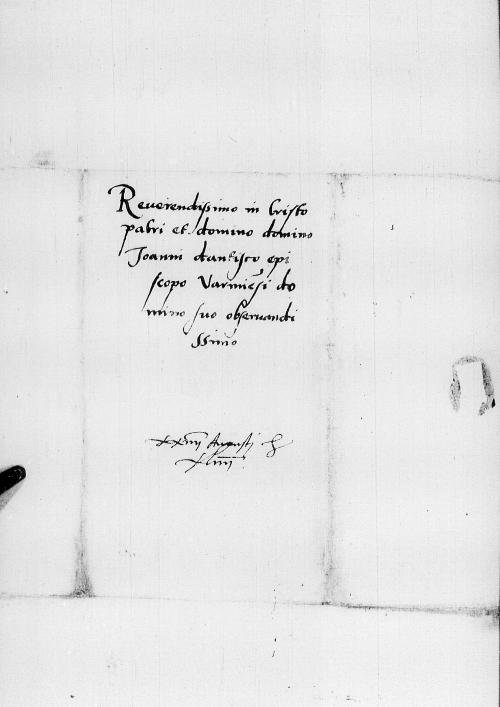 Reverendissimo in Cristo
patri et domino domino
Joanni dantisco epi
scopo Varmiensi do
mino suo observandi
ssimo
Augusti
xliiii